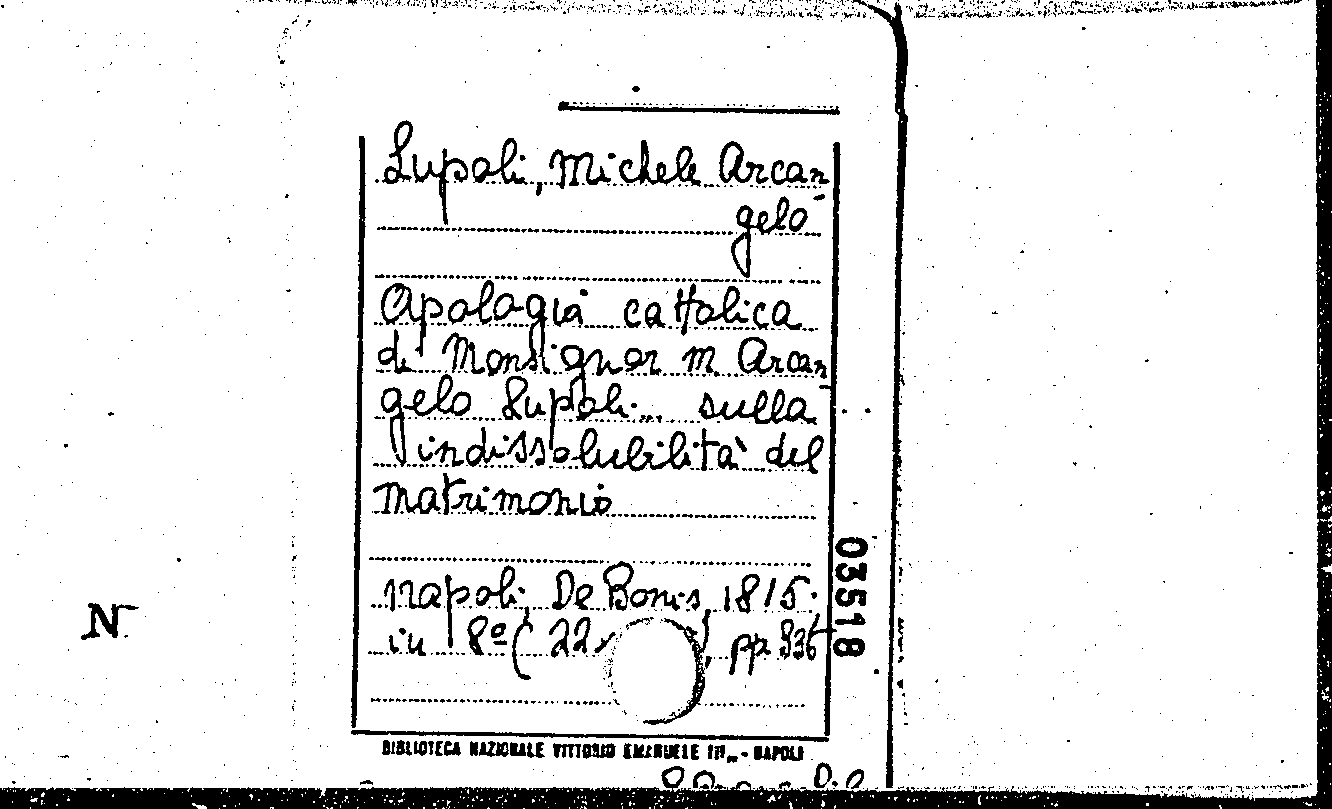 Lupoli, Michele Arcan
gelo
Apologia cattolica
di Monsignor M. Arcan
gelo Lupoli... sulla
indissolubilità del
matrimonio
Napoli, De Bonis, 1815.
in 8º (22x ), pp. 336
03518
N
BIBLIOTECA NAZIONALE VITTORIO EMANUELE III„ - NAPOLI